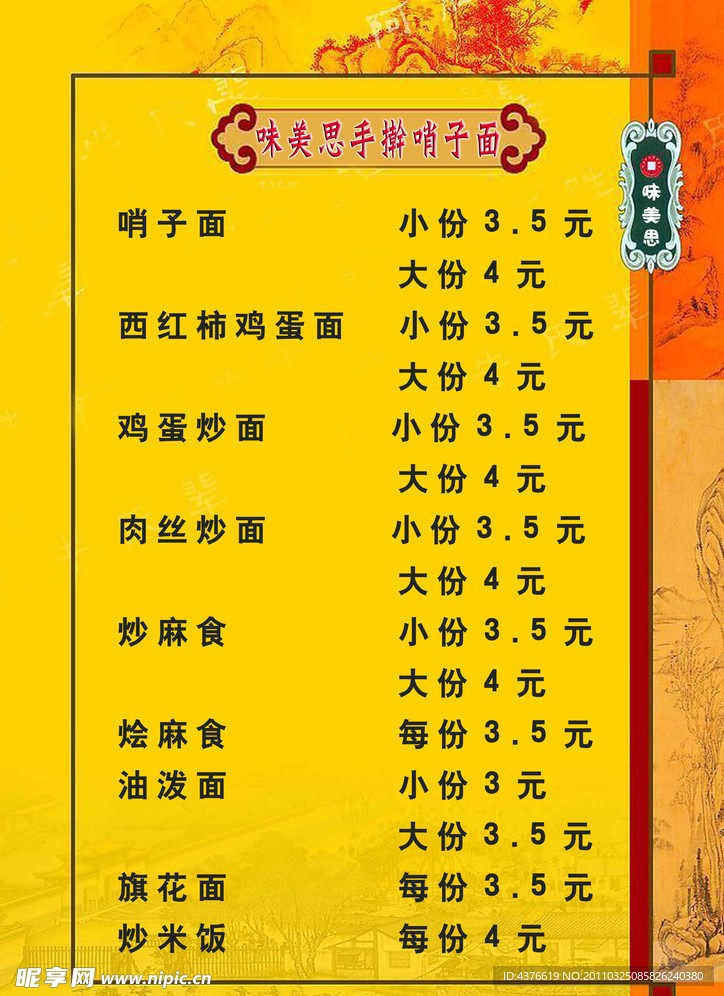 味美思手擀哨子面
味美思
哨子面 小份 3.5 元
大份 4 元
西红柿鸡蛋面 小份 3.5 元
大份 4 元
鸡蛋炒面 小份 3.5 元
大份 4 元
肉丝炒面 小份 3.5 元
大份 4 元
炒麻食 小份 3.5 元
大份 4 元
烩麻食 每份 3.5 元
油泼面 小份 3 元
大份 3.5 元
旗花面 每份 3.5 元
炒米饭 每份 4 元
昵享网 www.nipic.cn
ID:4376619 NO:20110325085826240380